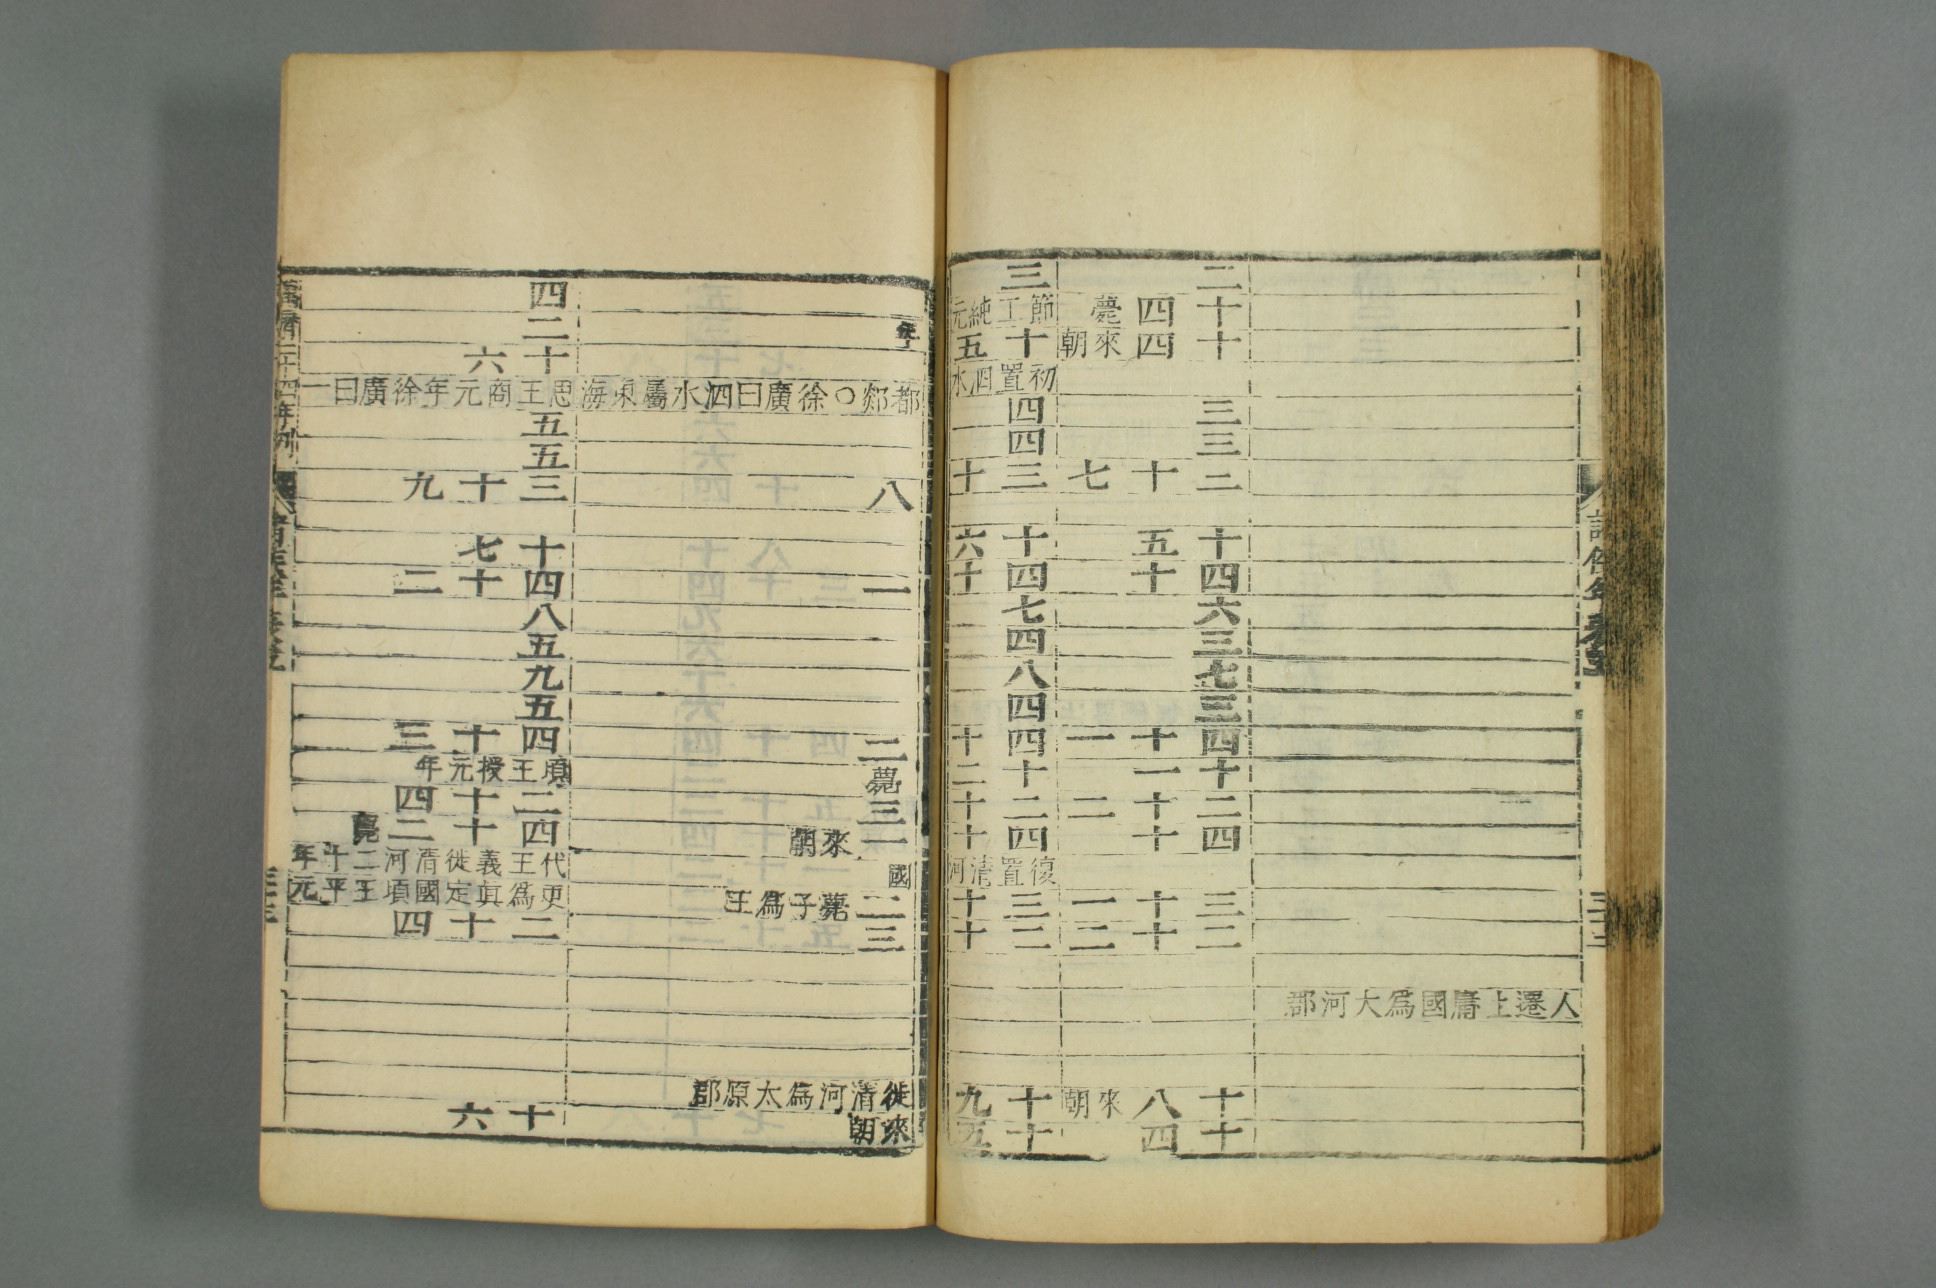 人遷上庸國為大河郡
二
十四薨
十四來朝
三
三
二十七
十五
四十
六
三
七
三
四十一
十一
二十二
四十
三十一
二十二
十八來朝
十四
三
節王純元
十五
初置泗水
四
四
三十
十六
四十
七
四
八
四
四十
十二
二十
四十
復置清河
三十
二十
十九
十五
年
都郯○徐廣曰泗水屬東海
八
一
二
薨
三
一來朝
國
二薨子為王
三
徙清河為太原郡
來朝
四
二
十六
思王商元年徐廣曰一
五
五
三十九
十七
四十二
八
五
九
五
四十三
頃王授元年
二十四
四十二薨
代王義徙清河二十年
更為真定國頃王平元
二十四
十六
萬曆二十四年刊